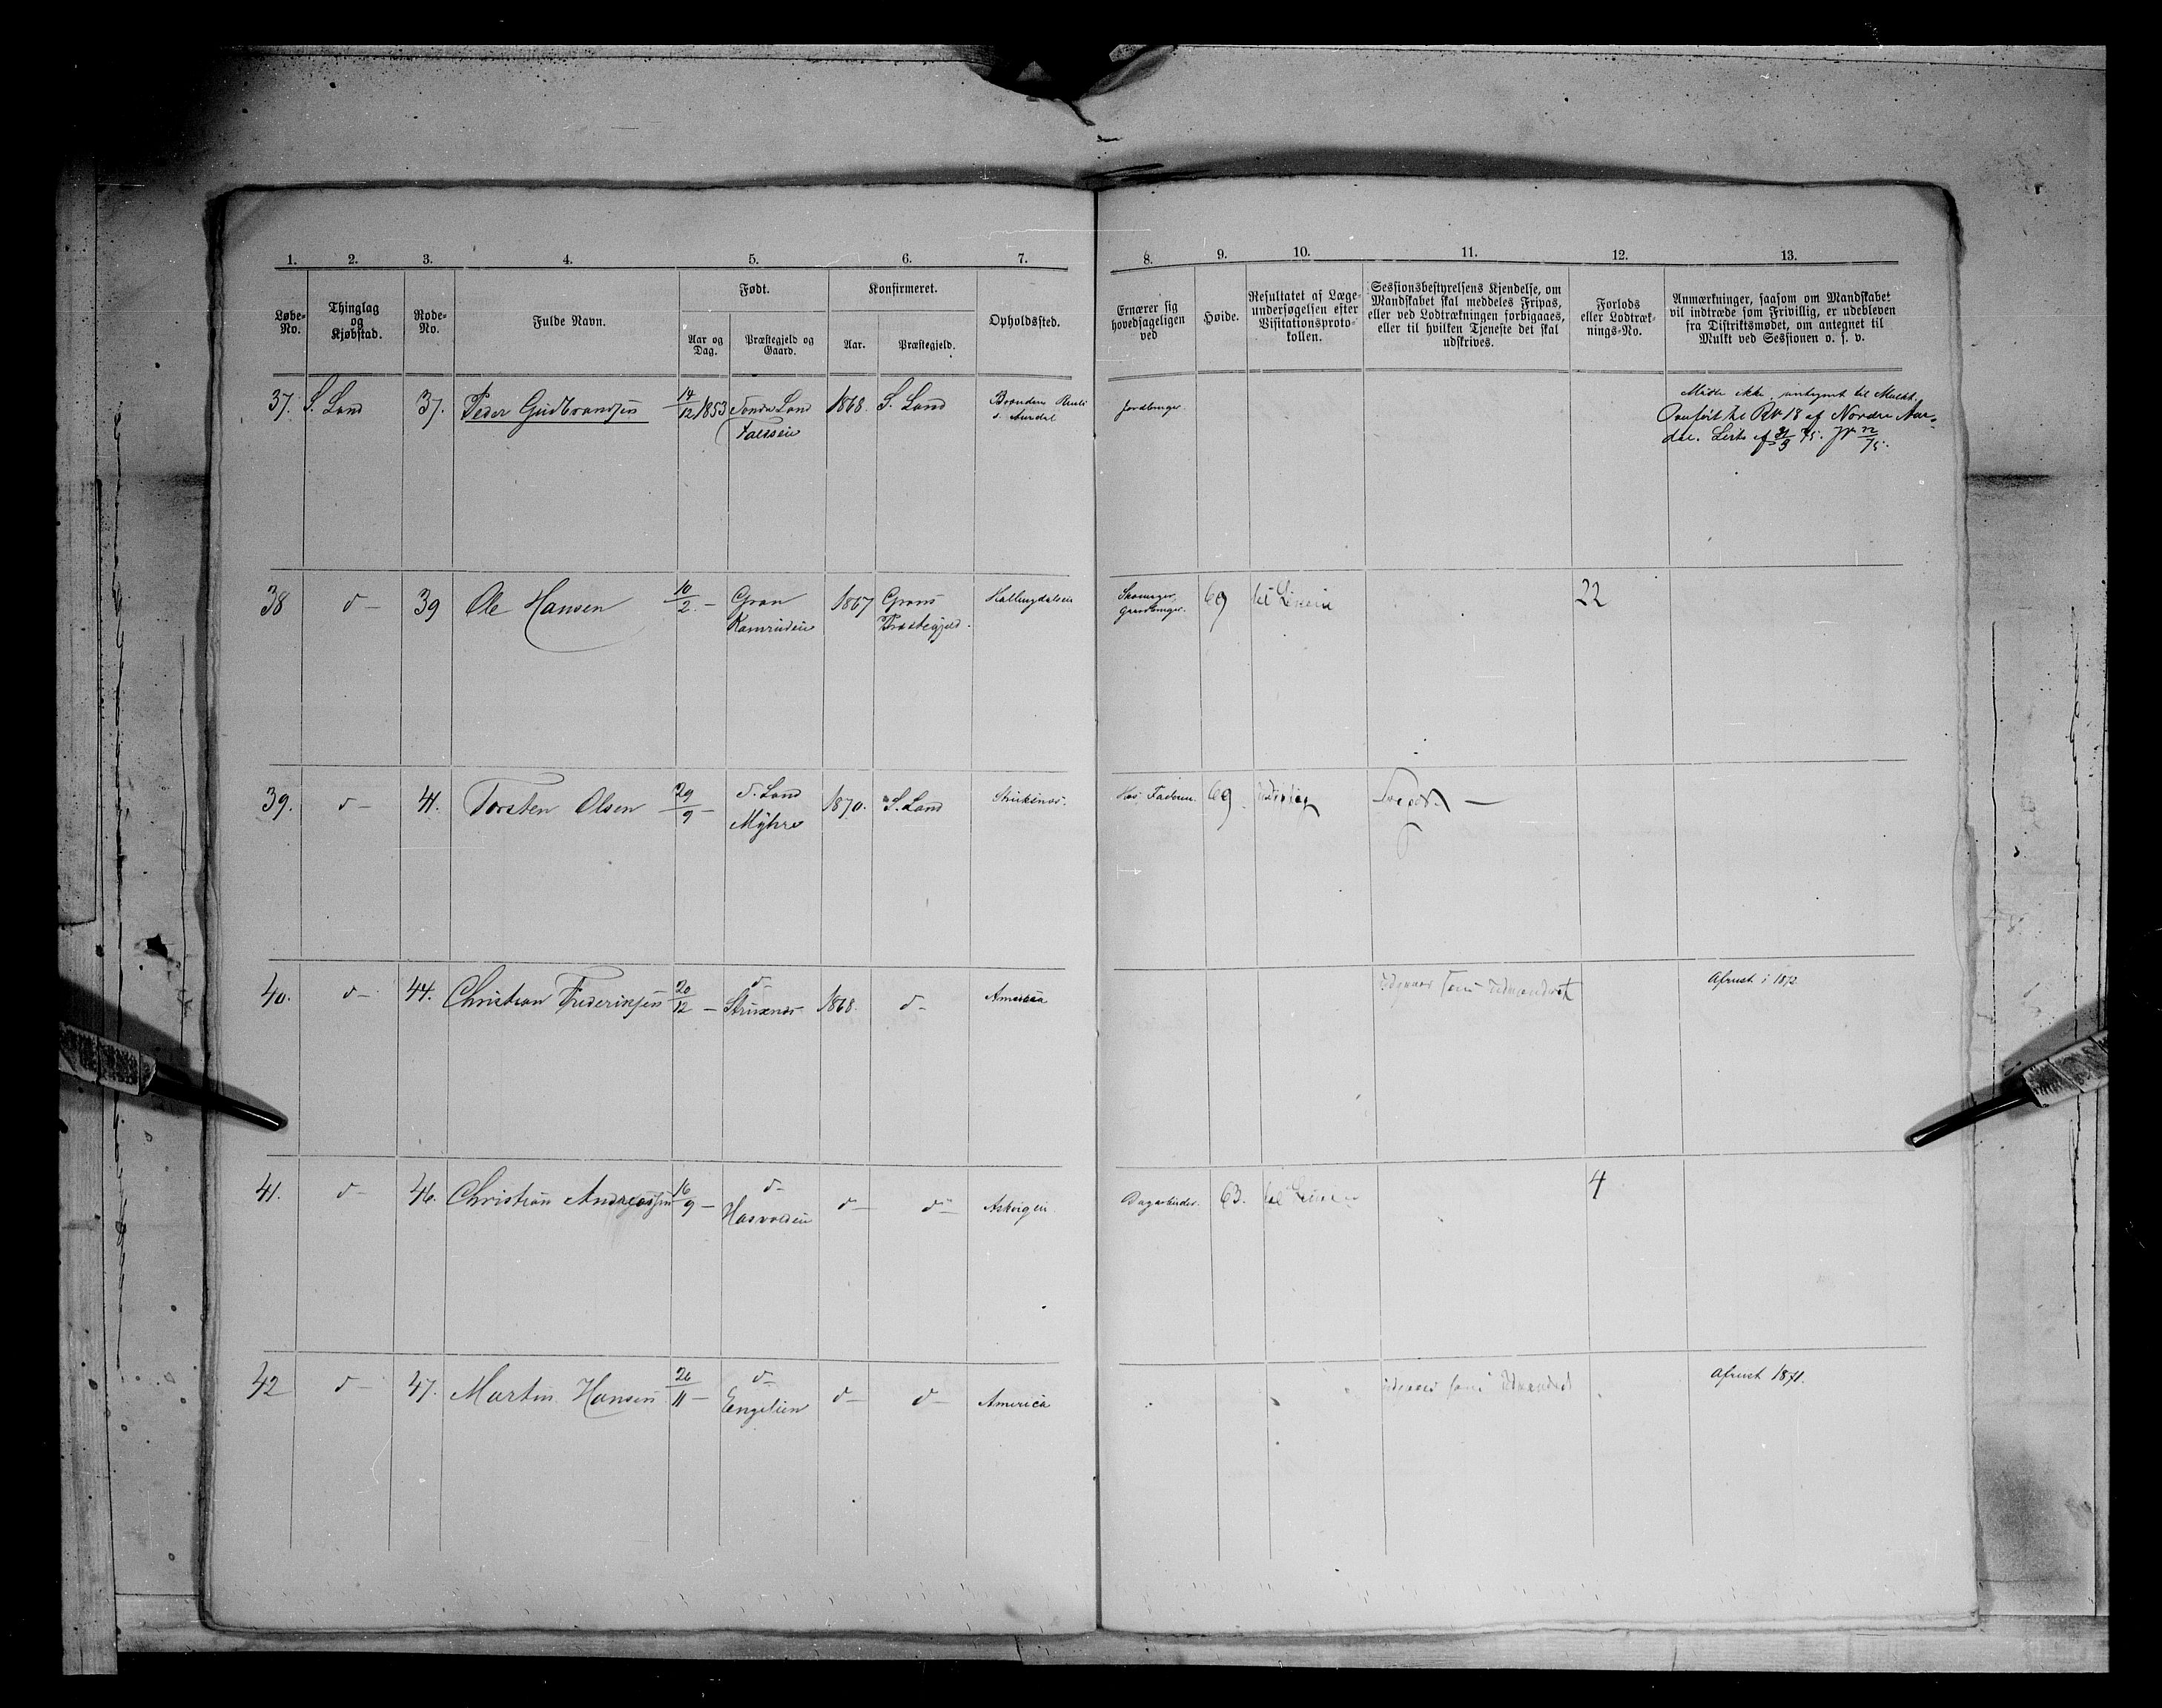 1. 2. 3. 4. 5. 6. 7. 8. 9. 10. 11. 12. 13.
Løbe-No.
Thinglag og Kjøbstad.
Rode-No.
Fulde Navn.
Født.
Aar og Dag.
Præstegjeld og Gaard.
Konfirmeret.
Aar.
Præstegjeld.
Opholdssted.
Ernærer sig hovedsageligen ved
Høide.
Resultatet af Læge-
undersøgelsen efter
Visitationsproto-
kollen.
Sessionsbestyrelsens Kjendelse, om
Mandskabet skal meddeles Fripas,
eller ved Lodtrækningen forbigaaes,
eller til hvilken Tjeneste det skal
udskrives.
Forlods
eller Lodtræk-
nings-No.
Anmærkninger, saasom om Mandskabet
vil indtræde som Frivillig, er udebleven
fra Distriktsmødet, om antegnet til
Mulkt ved Sessionen o. s. v.
37. S. Land 37. Peder Gudbrandsen 14/12 1853 Søndre Land 1868. S. Land
Mødte ikke, antegnet til Mulkt.
Overført til No 18 af Nordre Aur-
dal.
38 d- 39 Ole Hansen 10/2 - Gran 1867 Grans Hallingdalseie 69 til Linien 22
Præstegjeld.
39. d- 41. Torsten Olsen 29/9 - S. Land 1870. S. Land Hos Faderen. 69
Myhre
40. d- 44. Christian Frederiksen 20/12 - d- 1868. d- America udgaaer som udvandret Afreist i 1872
41. d- 46. Christian Andreassen 16/9 - d- d- d- 63. til Linien 4
42 d- 47. Martin Hansen 26/11 - d- d- d- America udgaaer som udvandret Afreist 1871.
Engelien